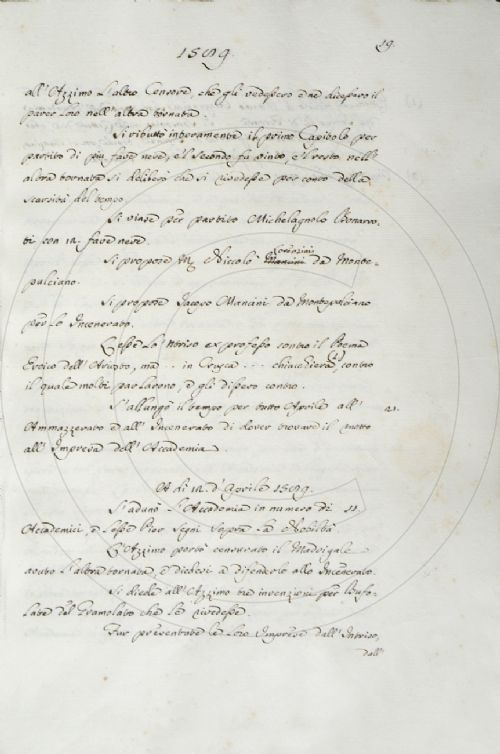 19.
1589.
all'Azzimo l'altro Censore, che gli vedessero e ne dicessero il
parer loro nell'altra tornata.
Si ributtò interamente il primo Capitolo per
partito di più fave nere, e il secondo fu vinto, e il resto nell'
altra tornata si deliberò che si rivedesse per conto della
scarsità del tempo.
Si vinse per partito Michelagnolo Bonarro-
ti con 12. fave nere.
Si propose M. Niccolò Lorenzini da Monte-
pulciano.
Si propose Jacopo Mancini da Montepulciano
per lo Incenerato.
Lesse lo 'ntriso ex professo contro il Poema
Eroico dell'Ariosto, ma .. in Crusca ... chiacchierò contro
il quale molti parlarono, e gli disero contro.
S'allungò il tempo per tutto Aprile all' 21.
Ammazzerato e all'Incenerato di dover trovare il motto
all'Impresa dell'Accademia.
A dì 12. d'Aprile 1589.
S'adunò l'Accademia in numero di 11.
Accademici, e lesse Pier Segni sopra la Nobiltà.
L'Azzimo portò censurato il Madrigale
avuto l'altra tornata, e diedesi a difendelo allo Incenerato.
Si diede all'Azzimo tre invenzioni per Bufo-
late del Gramolato che le rivedesse.
Fur presentate le loro Imprese dall'Intriso,
dall'